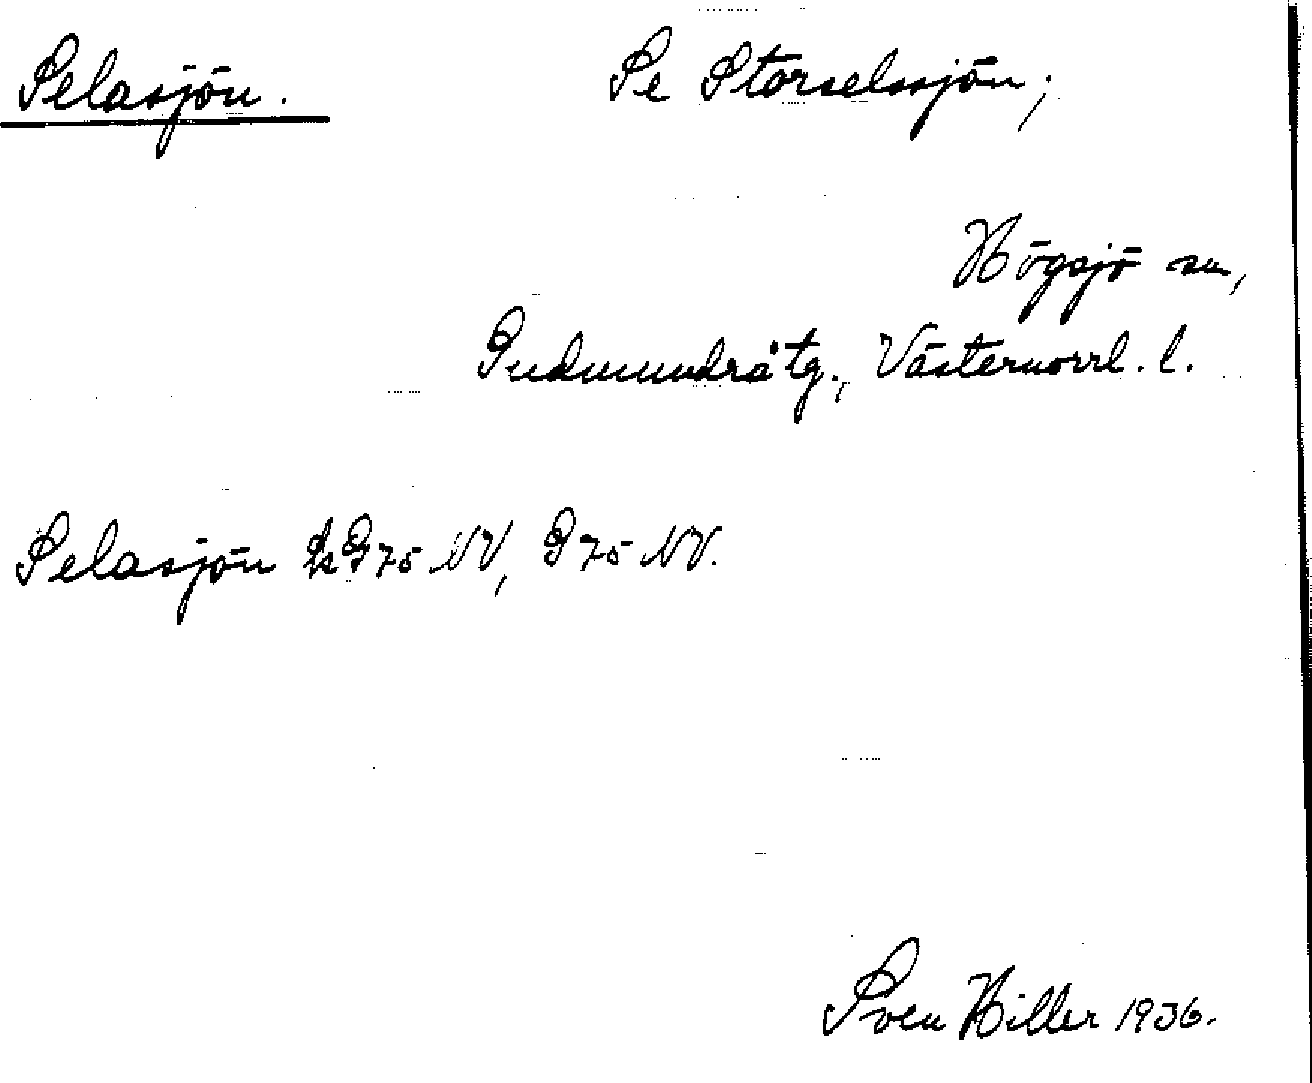 Selasjön. Se Storselssjön;
Högsjö sn,
Gudmundrå tg., Västernorrl. l.
Selasjön k G 75 NV, G 75 NV.
Sven Hiller 1936.